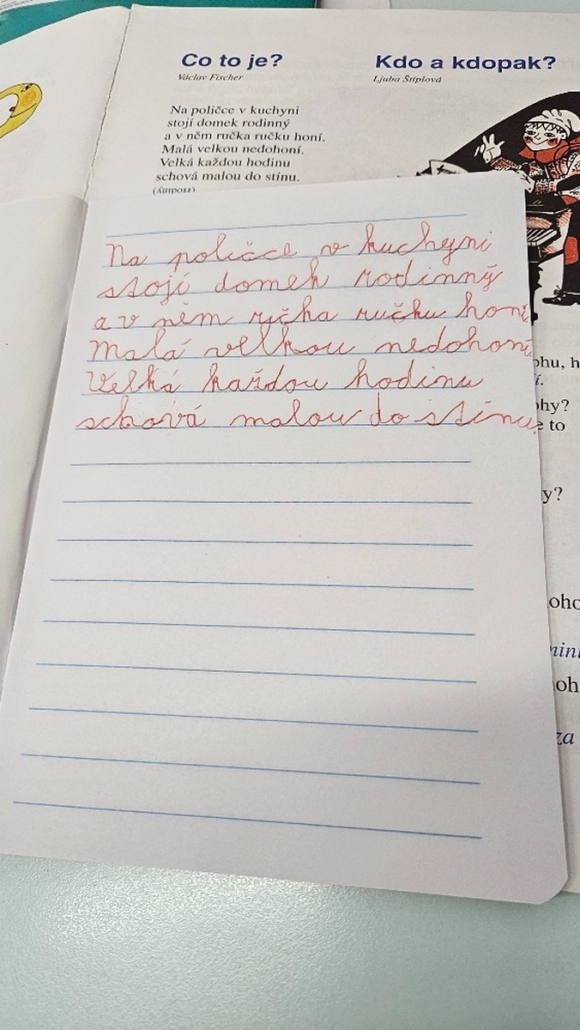 Co to je?
Václav Fischer
Na poličce v kuchyni
stojí domek rodinný
a v něm ručka ručku honí.
Malá velkou nedohoní.
Velká každou hodinu
schová malou do stínu.
(Hodiny)
Kdo a kdopak?
Ljuba Štíplová
Na poličce v kuchyni
stojí domek rodinný
a v něm ručka ručku honí
Malá velkou nedohoní.
Velká každou hodinu
schová malou do stínu.
ohu, h
í.
ohy?
e to
y?
oho
nin
oh
za